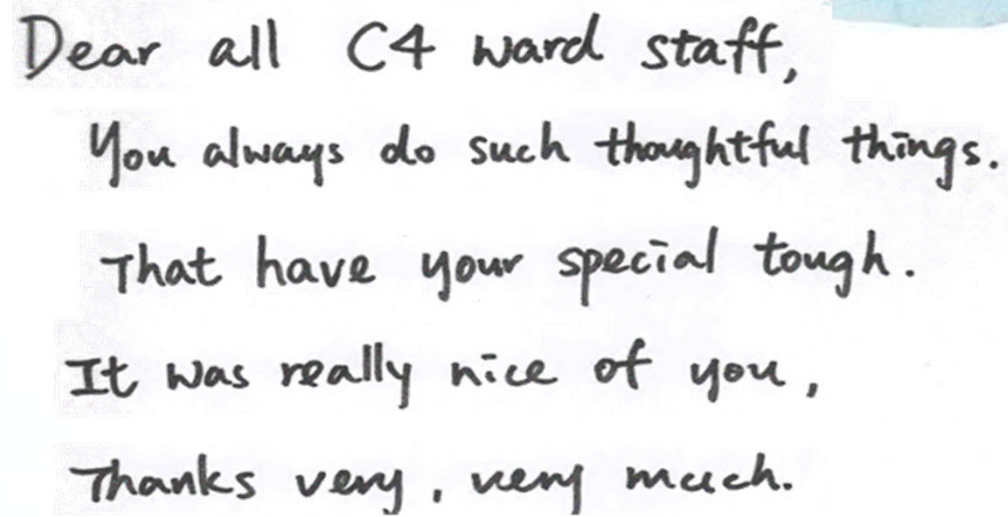 Dear all C4 ward staff,
You always do such thoughtful things.
That have your special tough.
It was really nice of you,
Thanks very, very much.